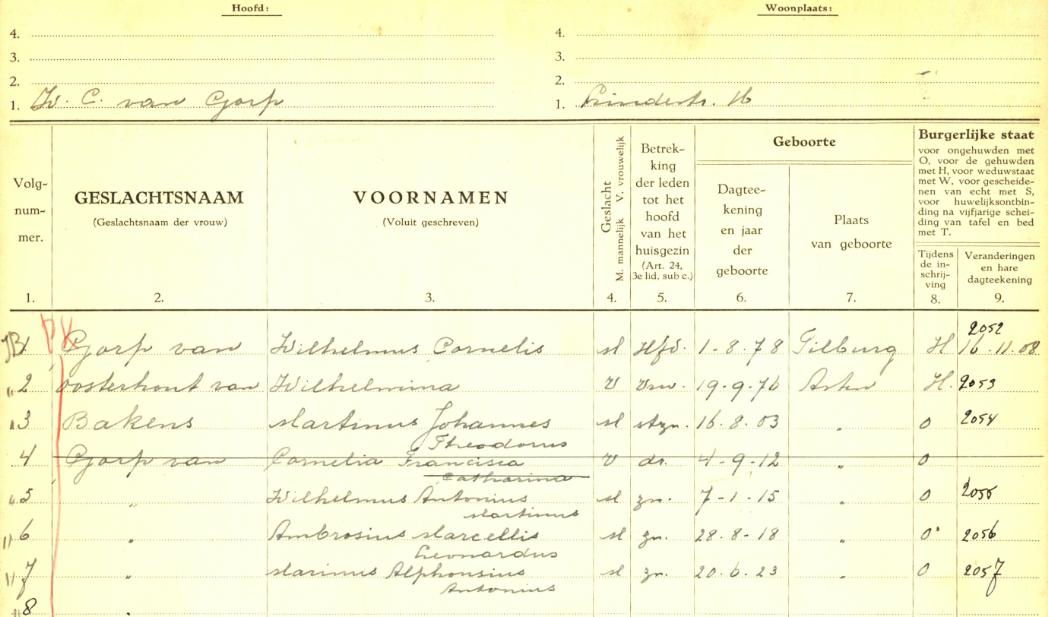 Hoofd: Woonplaats:
4. 4.
3. 3.
2. 2.
1. W. C. van Gorp 1. Lindestr. 16
Volg-
num-
mer.
1.
GESLACHTSNAAM
(Geslachtsnaam der vrouw)
2.
VOORNAMEN
(Voluit geschreven)
3.
Geslacht
M. mannelijk V. vrouwelijk
4.
Betrek-
king
der leden
tot het
hoofd
van het
huisgezin
(Art. 24,
3e lid, sub c.)
5.
Geboorte
Dagtee-
kening
en jaar
der
geboorte
6.
Plaats
van geboorte
7.
Burgerlijke staat
voor ongehuwden met
O, voor de gehuwden
met H, voor weduwstaat
met W, voor gescheide-
nen van echt met S,
voor huwelijksontbin-
ding na vijfjarige schei-
ding van tafel en bed
met T.
Tijdens
de in-
schrij-
ving
8.
Veranderingen
en hare
dagteekening
9.
2052
1 Gorp van Wilhelmus Cornelis M Hfd. 1-8-78 Tilburg H 16-11-08
" 2 Oosterhout van Wilhelmina V vrw. 19-9-76 H. 2053
3 Bakens Martinus Johannes M stzn. 16-8-03 " O 2054
Theodorus
4 Gorp van Cornelia Francisca V dr. 4-9-12 " O
Catharina
" 5 " Wilhelmus Antonius M zn. 7-1-15 " O 2055
Martinus
" 6 " Ambrosius Marcellis M zn. 28-8-18 " O 2056
Leonardus
" 7 " Marinus Alphonsius M zn. 20-6-23 " O 2057
Antonius
" 8 "